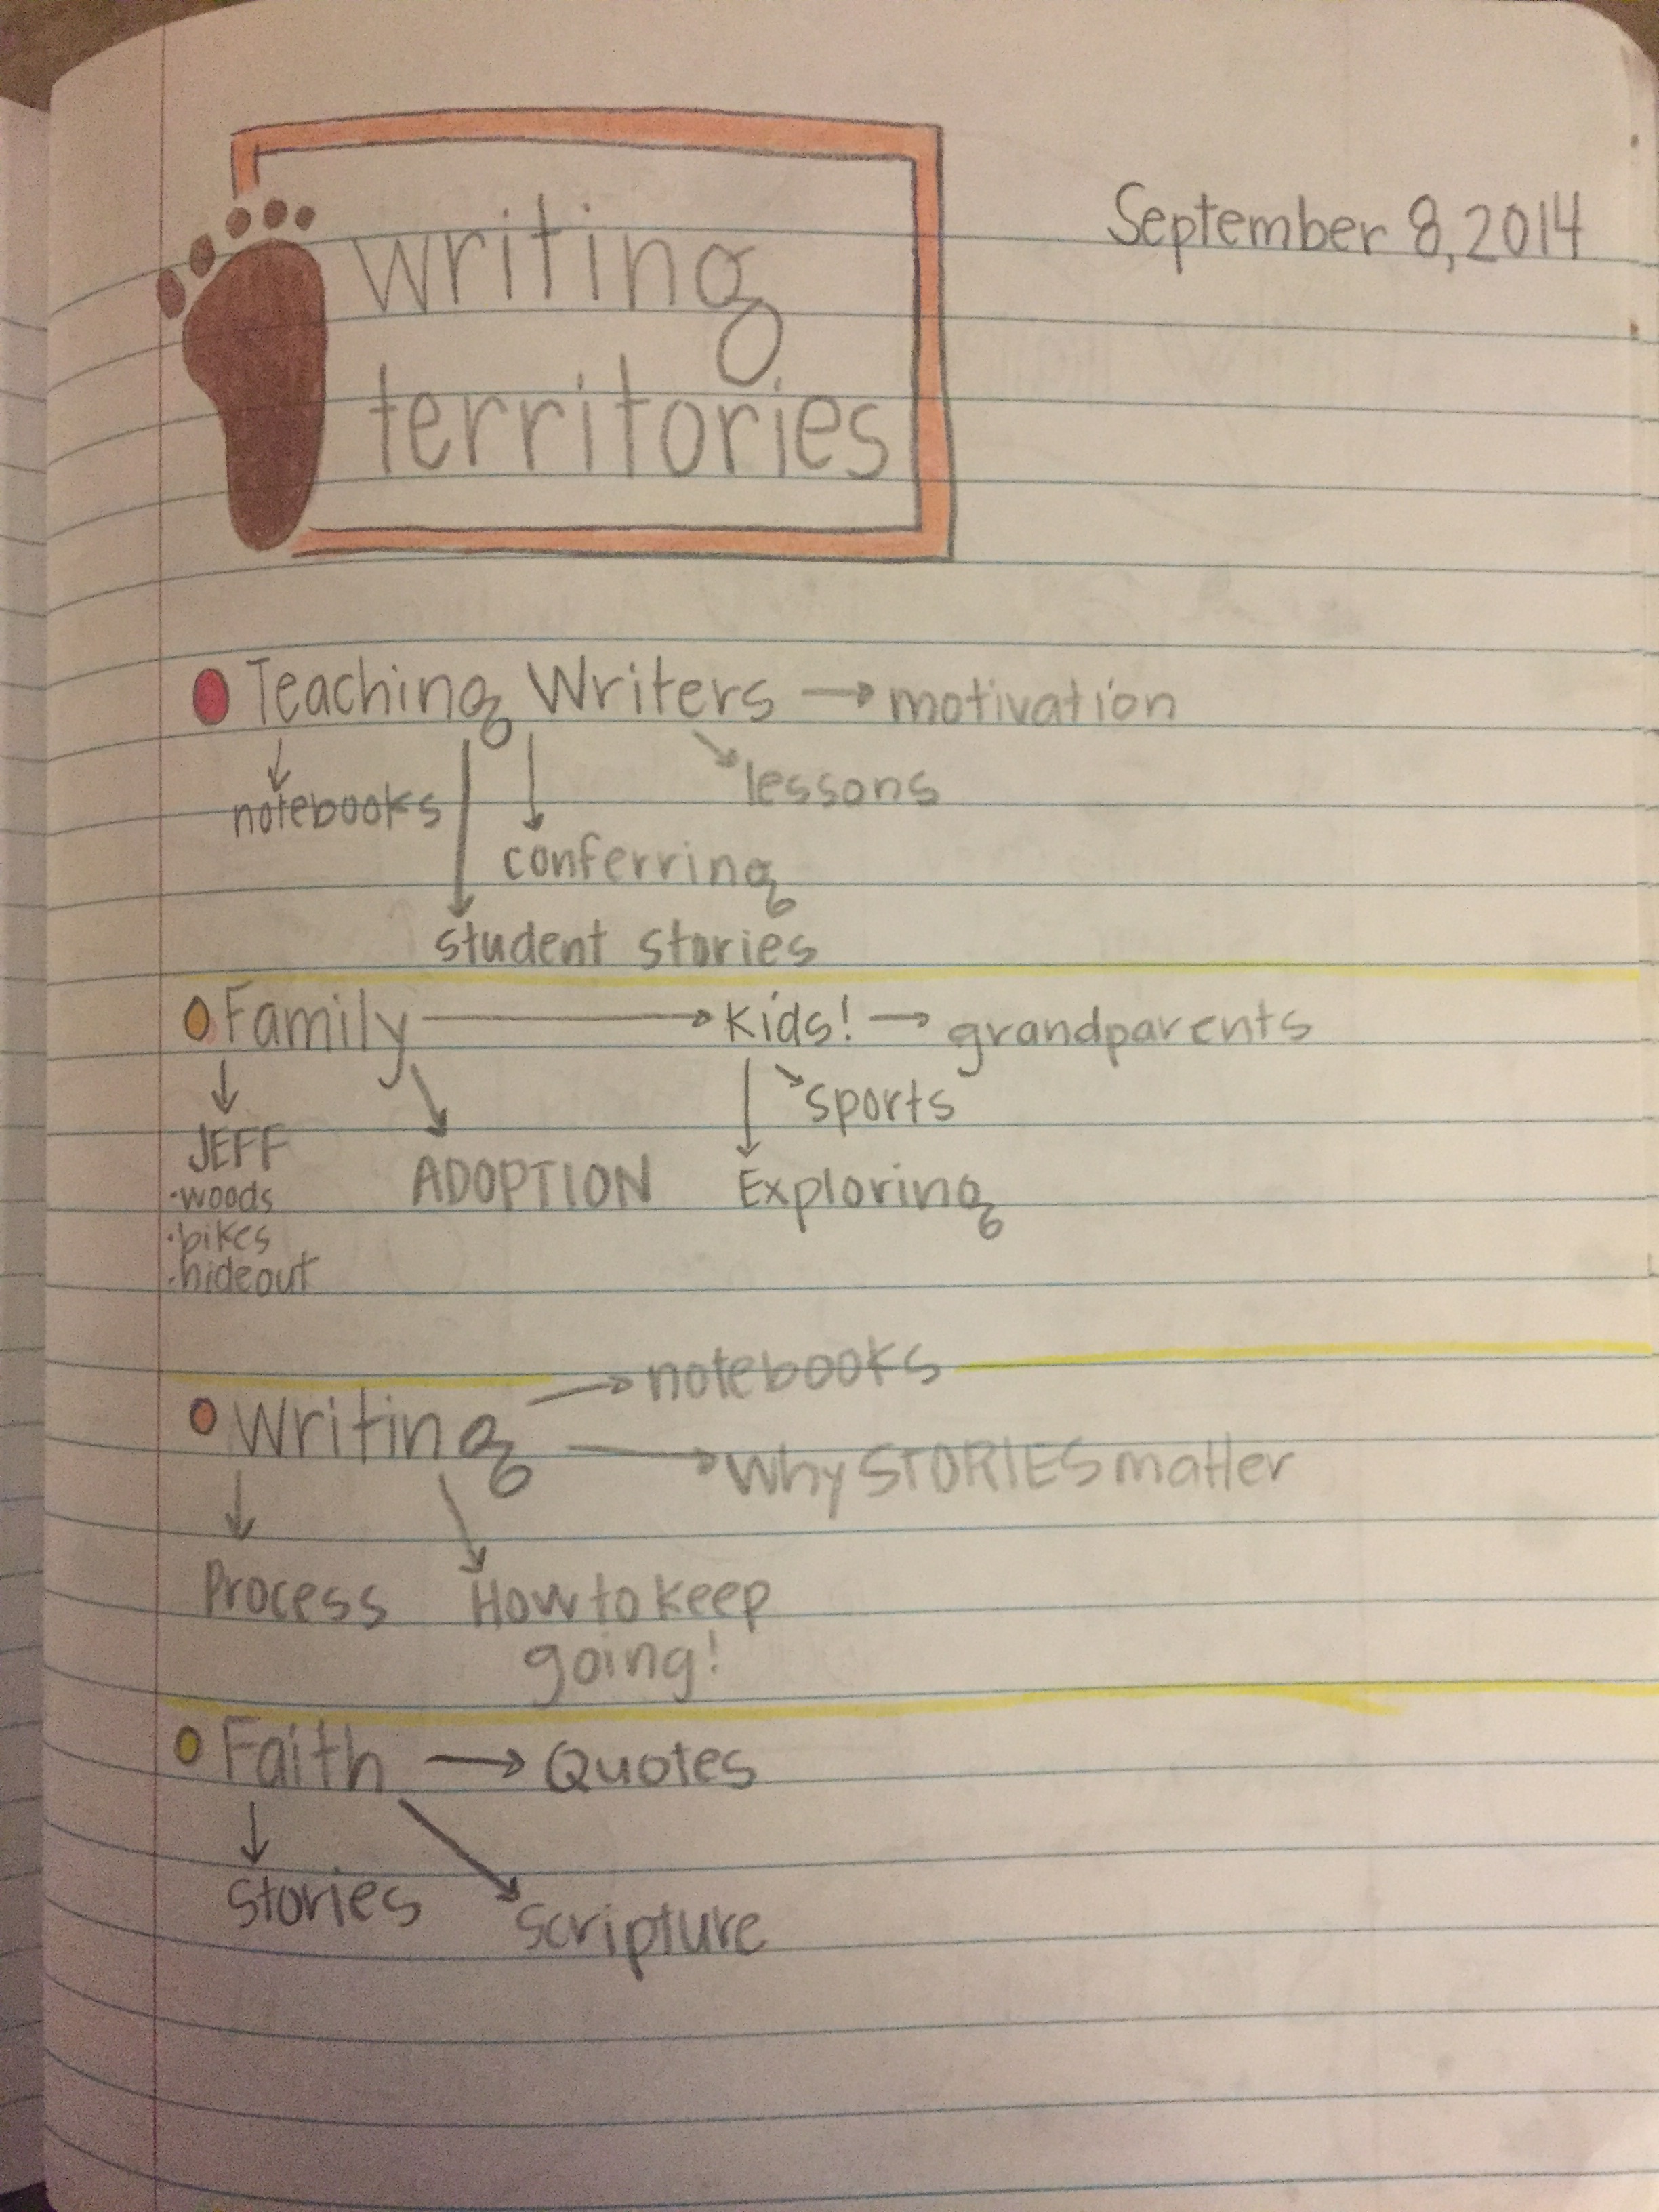 September 8, 2014
writing
territories
Teaching Writers → motivation
lessons
notebooks
conferring
student stories
Family → Kids! → grandparents
sports
JEFF
ADOPTION
Exploring
·woods
·bikes
·hideout
notebooks
Writing
Why STORIES matter
Process
How to keep
going!
Faith → Quotes
Stories
Scripture